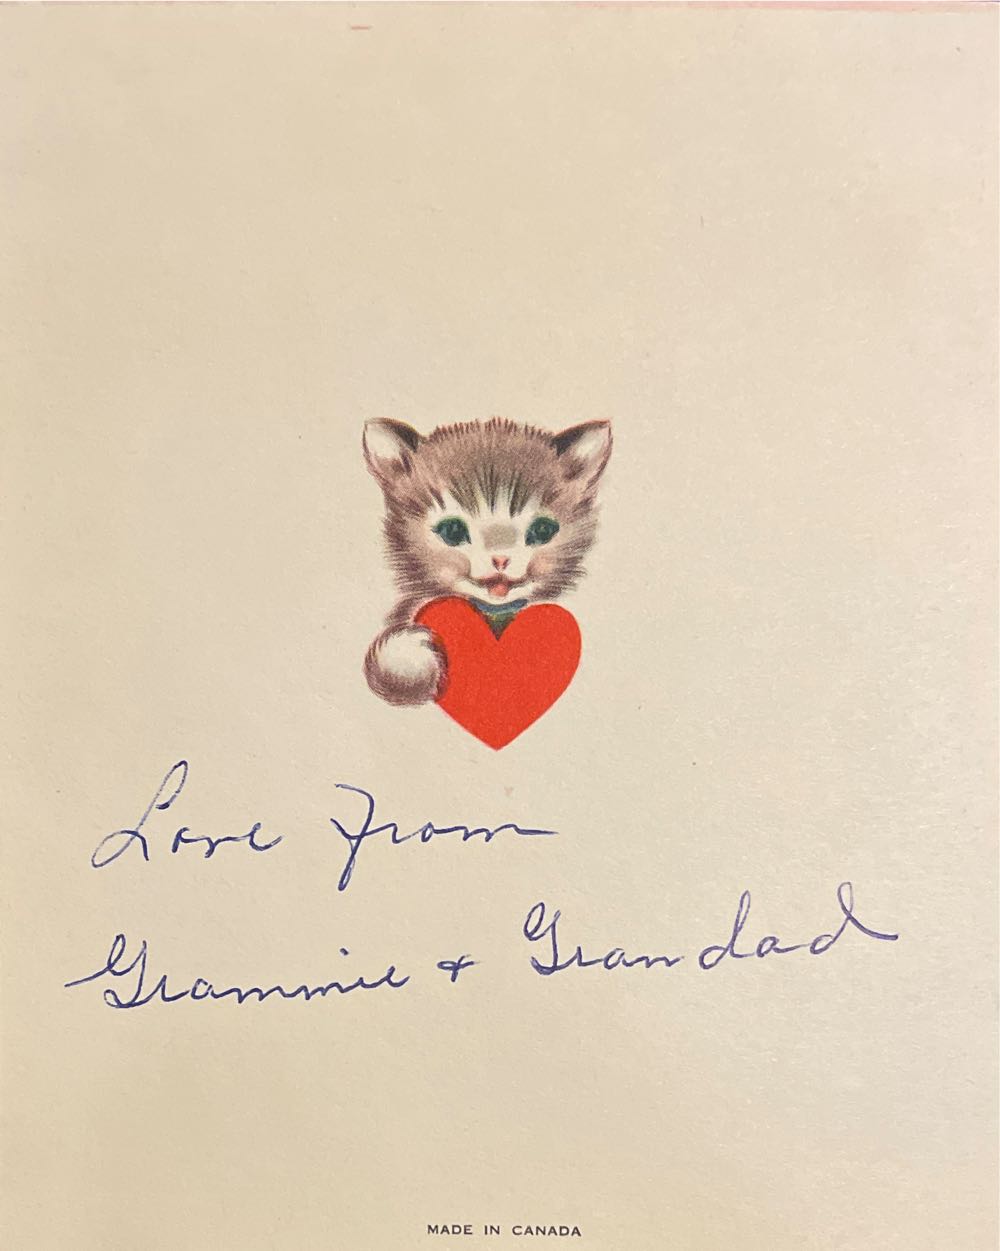 Love from
Grammie & Grandad
MADE IN CANADA